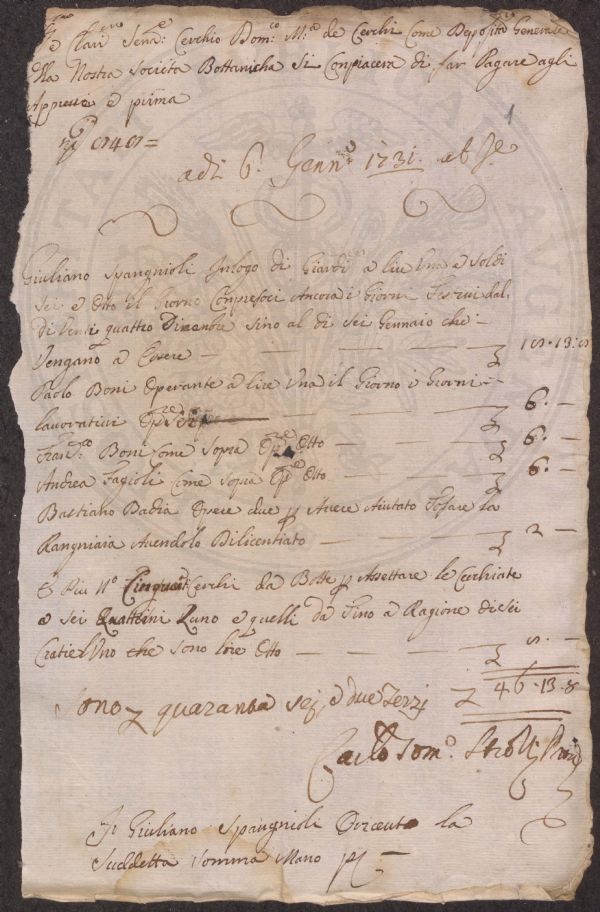 e Clari.mo Sen.e Cerchio Dom.co M.a de Cerchi Come Deposit.o Generale
dlla Nostra Societa Bottanicha Si Conpiacera di far Pagare agli
Appresso e pirma
1
adi 6. Genn.o 1731. ab
Giuliano Spangnioli Inlogo di Giardi a lire Una e Soldi
Sei e Otto il Giorno Conpresoci Ancora i Giorni Festivi dal
Di Venti quattro Dicenbre Sino al di Sei Gennaio che -
Vengano a Essere - 18.13.8
Paolo Boni Operante a lire Una il Giorno i Giorni
lavorativi Op.re Sei 6. -
Fran.co Boni Come Sopra Op.re Otto - 6. -
Andrea Fagioli Come Sopra Op.re Otto - 6. -
Bastiano Badia Opere due p Avere Aiutato Fosare la
Rangniaia Avendolo Dilicentiato - 2 -
E Piu N.o Cinquant Cerchi da Botte p Assettare le Cerchiate
a Sei Quattrini Luno e quelli da Tino a Ragione di Sei
Cratie lUno che Sono lore Otto - 8. -
46.13.8
Sono quaranta sej, e due Terzj
Carlo Tom.o Strozzi
Io Giuliano Spangnioli O riceuto la
Suddetta Somma Mano pp